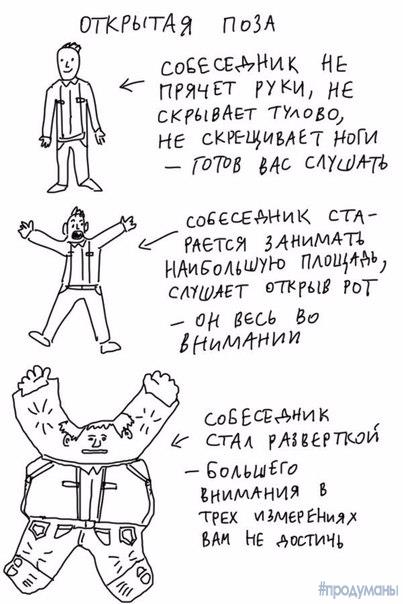 ОТКРЫТАЯ ПОЗА
СОБЕСЕДНИК НЕ
ПРЯЧЕТ РУКИ, НЕ
СКРЫВАЕТ ТУЛОВО,
НЕ СКРЕЩИВАЕТ НОГИ
— ГОТОВ ВАС СЛУШАТЬ
СОБЕСЕДНИК СТА-
РАЕТСЯ ЗАНИМАТЬ
НАИБОЛЬШУЮ ПЛОЩАДЬ,
СЛУШАЕТ ОТКРЫВ РОТ
— ОН ВЕСЬ ВО
ВНИМАНИИ
СОБЕСЕДНИК
СТАЛ РАЗВЕРТКОЙ
— БОЛЬШЕГО
ВНИМАНИЯ В
ТРЕХ ИЗМЕРЕНИЯХ
ВАМ НЕ ДОСТИЧЬ
#продуманы